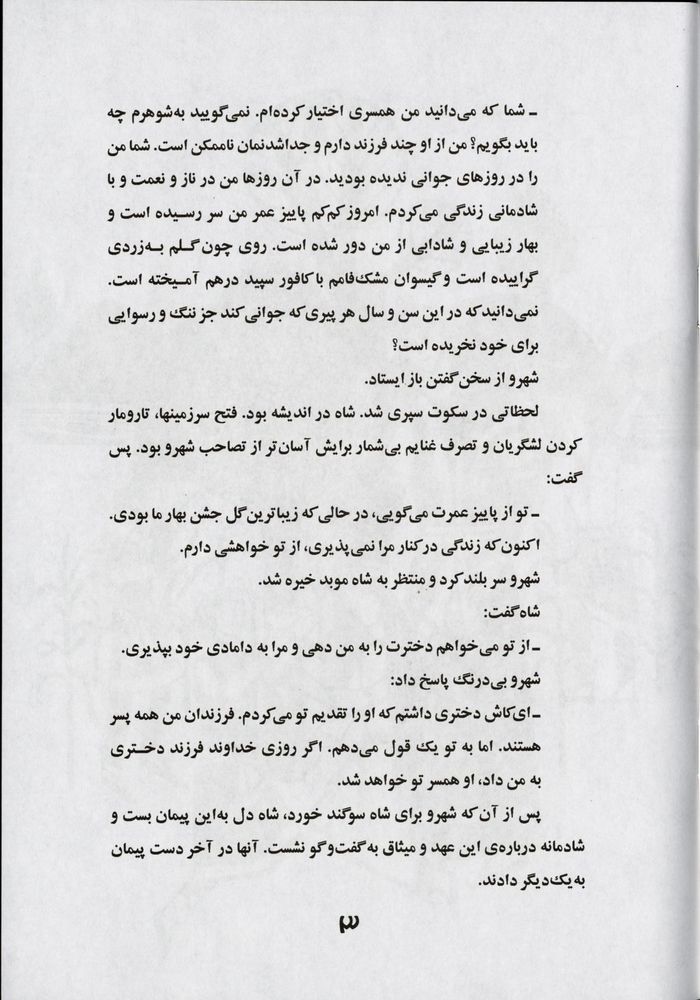 ـ شما که می‌دانید من همسری اختیار کرده‌ام. نمی‌گویید به‌شوهرم چه
باید بگویم؟ من از او چند فرزند دارم و جداشدنمان ناممکن است. شما من
را در روزهای جوانی ندیده بودید. در آن روزها من در ناز و نعمت و با
شادمانی زندگی می‌کردم. امروز کم‌کم پاییز عمر من سر رسیده است و
بهار زیبایی و شادابی از من دور شده است. روی چون گلم به‌زردی
گراییده است و گیسوان مشک‌فامم با کافور سپید درهم آمیخته است.
نمی‌دانید که در این سن و سال هر پیری که جوانی کند جز ننگ و رسوایی
برای خود نخریده است؟
شهرو از سخن گفتن باز ایستاد.
لحظاتی در سکوت سپری شد. شاه در اندیشه بود. فتح سرزمینها، تارومار
کردن لشگریان و تصرف غنایم بی‌شمار برایش آسان‌تر از تصاحب شهرو بود. پس
گفت:
ـ تو از پاییز عمرت می‌گویی، در حالی‌که زیباترین گل جشن بهار ما بودی.
اکنون که زندگی در کنار مرا نمی‌پذیری، از تو خواهشی دارم.
شهرو سر بلند کرد و منتظر به شاه موبد خیره شد.
شاه گفت:
ـ از تو می‌خواهم دخترت را به من دهی و مرا به دامادی خود بپذیری.
شهرو بی‌درنگ پاسخ داد:
ـ ای‌کاش دختری داشتم که او را تقدیم تو می‌کردم. فرزندان من همه پسر
هستند. اما به تو یک قول می‌دهم. اگر روزی خداوند فرزند دختری
به من داد، او همسر تو خواهد شد.
پس از آن که شهرو برای شاه سوگند خورد، شاه دل به‌این پیمان بست و
شادمانه درباره‌ی این عهد و میثاق به گفت‌وگو نشست. آنها در آخر دست پیمان
به یک‌دیگر دادند.
۳